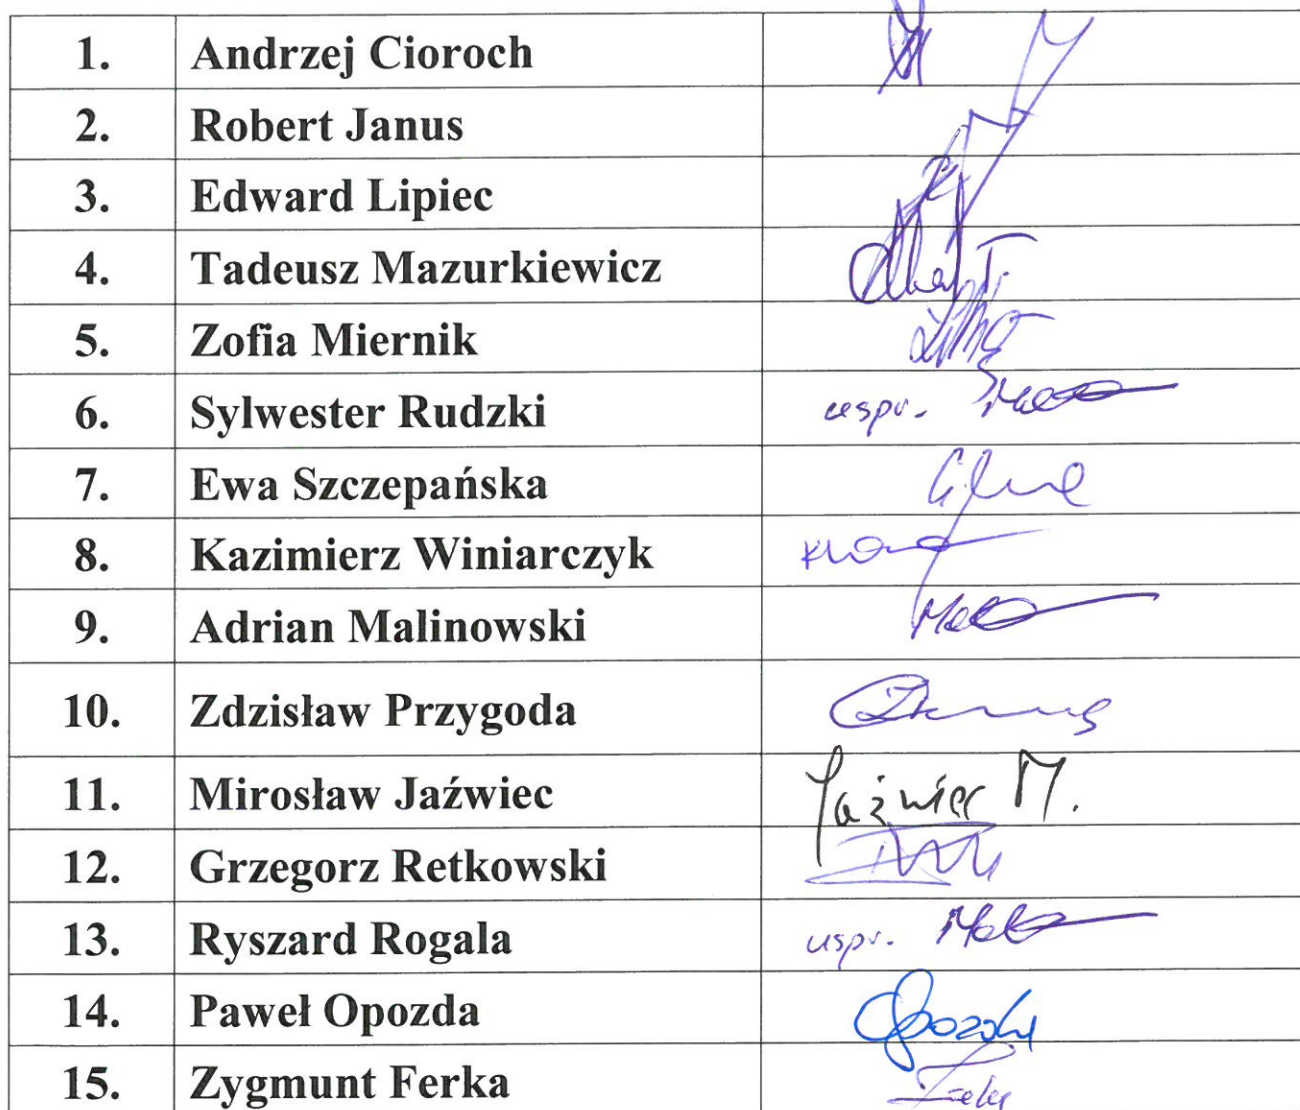 1. Andrzej Cioroch
2. Robert Janus
3. Edward Lipiec
4. Tadeusz Mazurkiewicz
5. Zofia Miernik
6. Sylwester Rudzki uspr.
7. Ewa Szczepańska
8. Kazimierz Winiarczyk
9. Adrian Malinowski
10. Zdzisław Przygoda
11. Mirosław Jaźwiec Jaźwiec M.
12. Grzegorz Retkowski
13. Ryszard Rogala uspr.
14. Paweł Opozda Opozda
15. Zygmunt Ferka